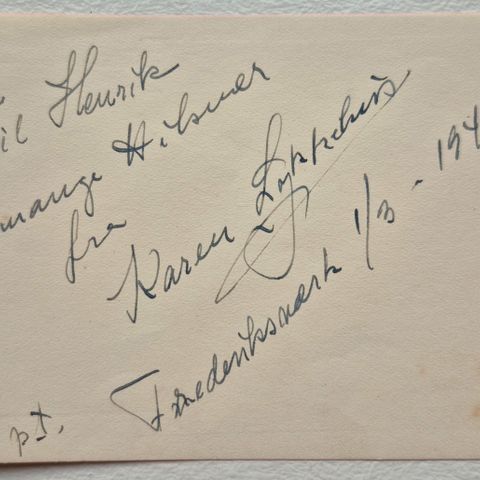 il Henrik
mange Hilsner
fra
Karen Lykkehus
pt. Frederiksværk 1/3 - 194